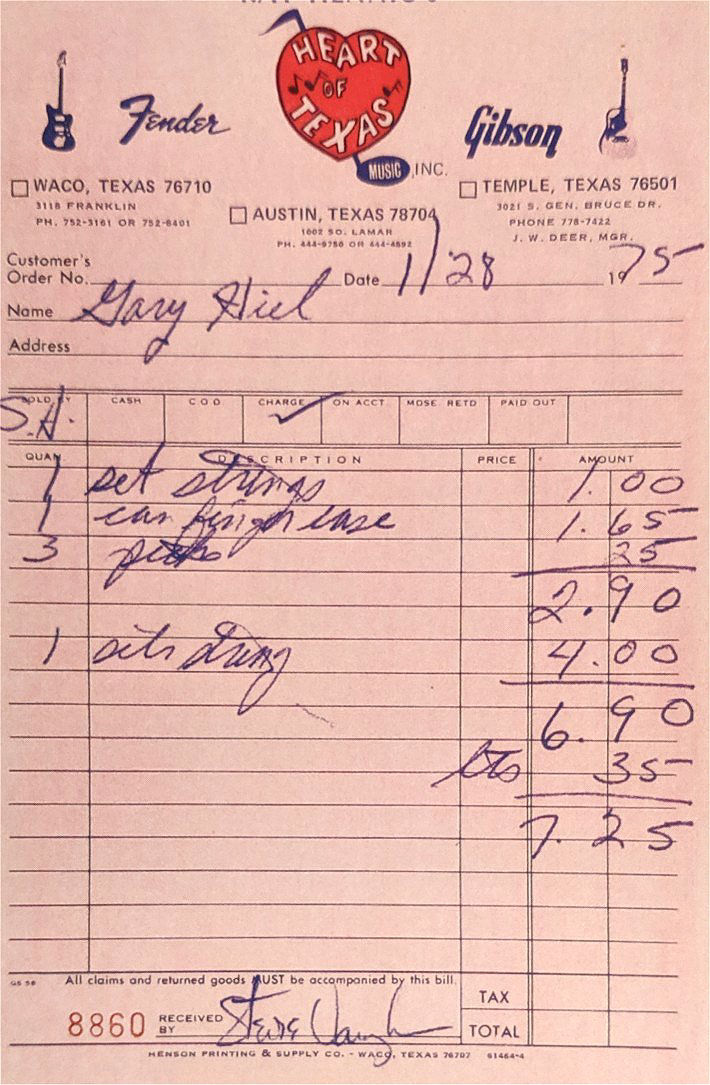 HEART
OF
TEXAS
MUSIC INC.
Fender
Gibson
WACO, TEXAS 76710
3118 FRANKLIN
PH. 752-3161 OR 752-8401
AUSTIN, TEXAS 78704
1002 SO. LAMAR
PH. 444-9750 OR 444-4592
TEMPLE, TEXAS 76501
3021 S. GEN. BRUCE DR.
PHONE 778-7422
J. W. DEER, MGR.
Customer's
Order No. Date 1/28 1975
Name Gary Hiel
Address
SOLD BY CASH C O D CHARGE ON ACCT. MDSE. RETD PAID OUT
S.H. ✓
QUAN. DESCRIPTION PRICE AMOUNT
1 set strings 1.00
1 can finger ease 1.65
3 picks 25
2.90
1 set string 4.00
6.90
35
7.25
GS 58 All claims and returned goods MUST be accompanied by this bill.
TAX
8860 RECEIVED BY Steve Vaughan
TOTAL
HENSON PRINTING & SUPPLY CO. - WACO, TEXAS 76707 61464-4